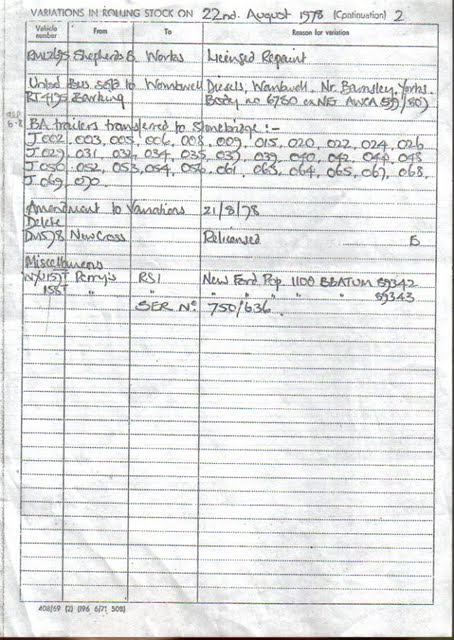 VARIATIONS IN ROLLING STOCK ON 22nd. August 1978 (Continuation) 2
Vehicle number From To Reason for variation
Shepherds B Works Licensed Repaint
Used Bus sold to Wombwell Diesels, Wombwell, Nr. Barnsley, Yorks.
Barking Body no 6750
BA trailers transferred to Stonebridge :-
J 002, 003, 005, 006, 008, 009, 015, 020, 022, 024, 026
J 029, 031, 034, 035, 037, 039, 040, 042, 044, 048
J 050, 052, 053, 054, 056, 061, 063, 064, 065, 067, 068.
J 069, 070.
Amendment to Variations 21/8/78
Delete
DM578 New Cross Relicensed B
Miscellaneous
157T Perry's RS1 New Ford Pop. 1100 59342
158T " " " " " " 59343
SER No. 750/636.
408/69 (2) (196 6/71 508)